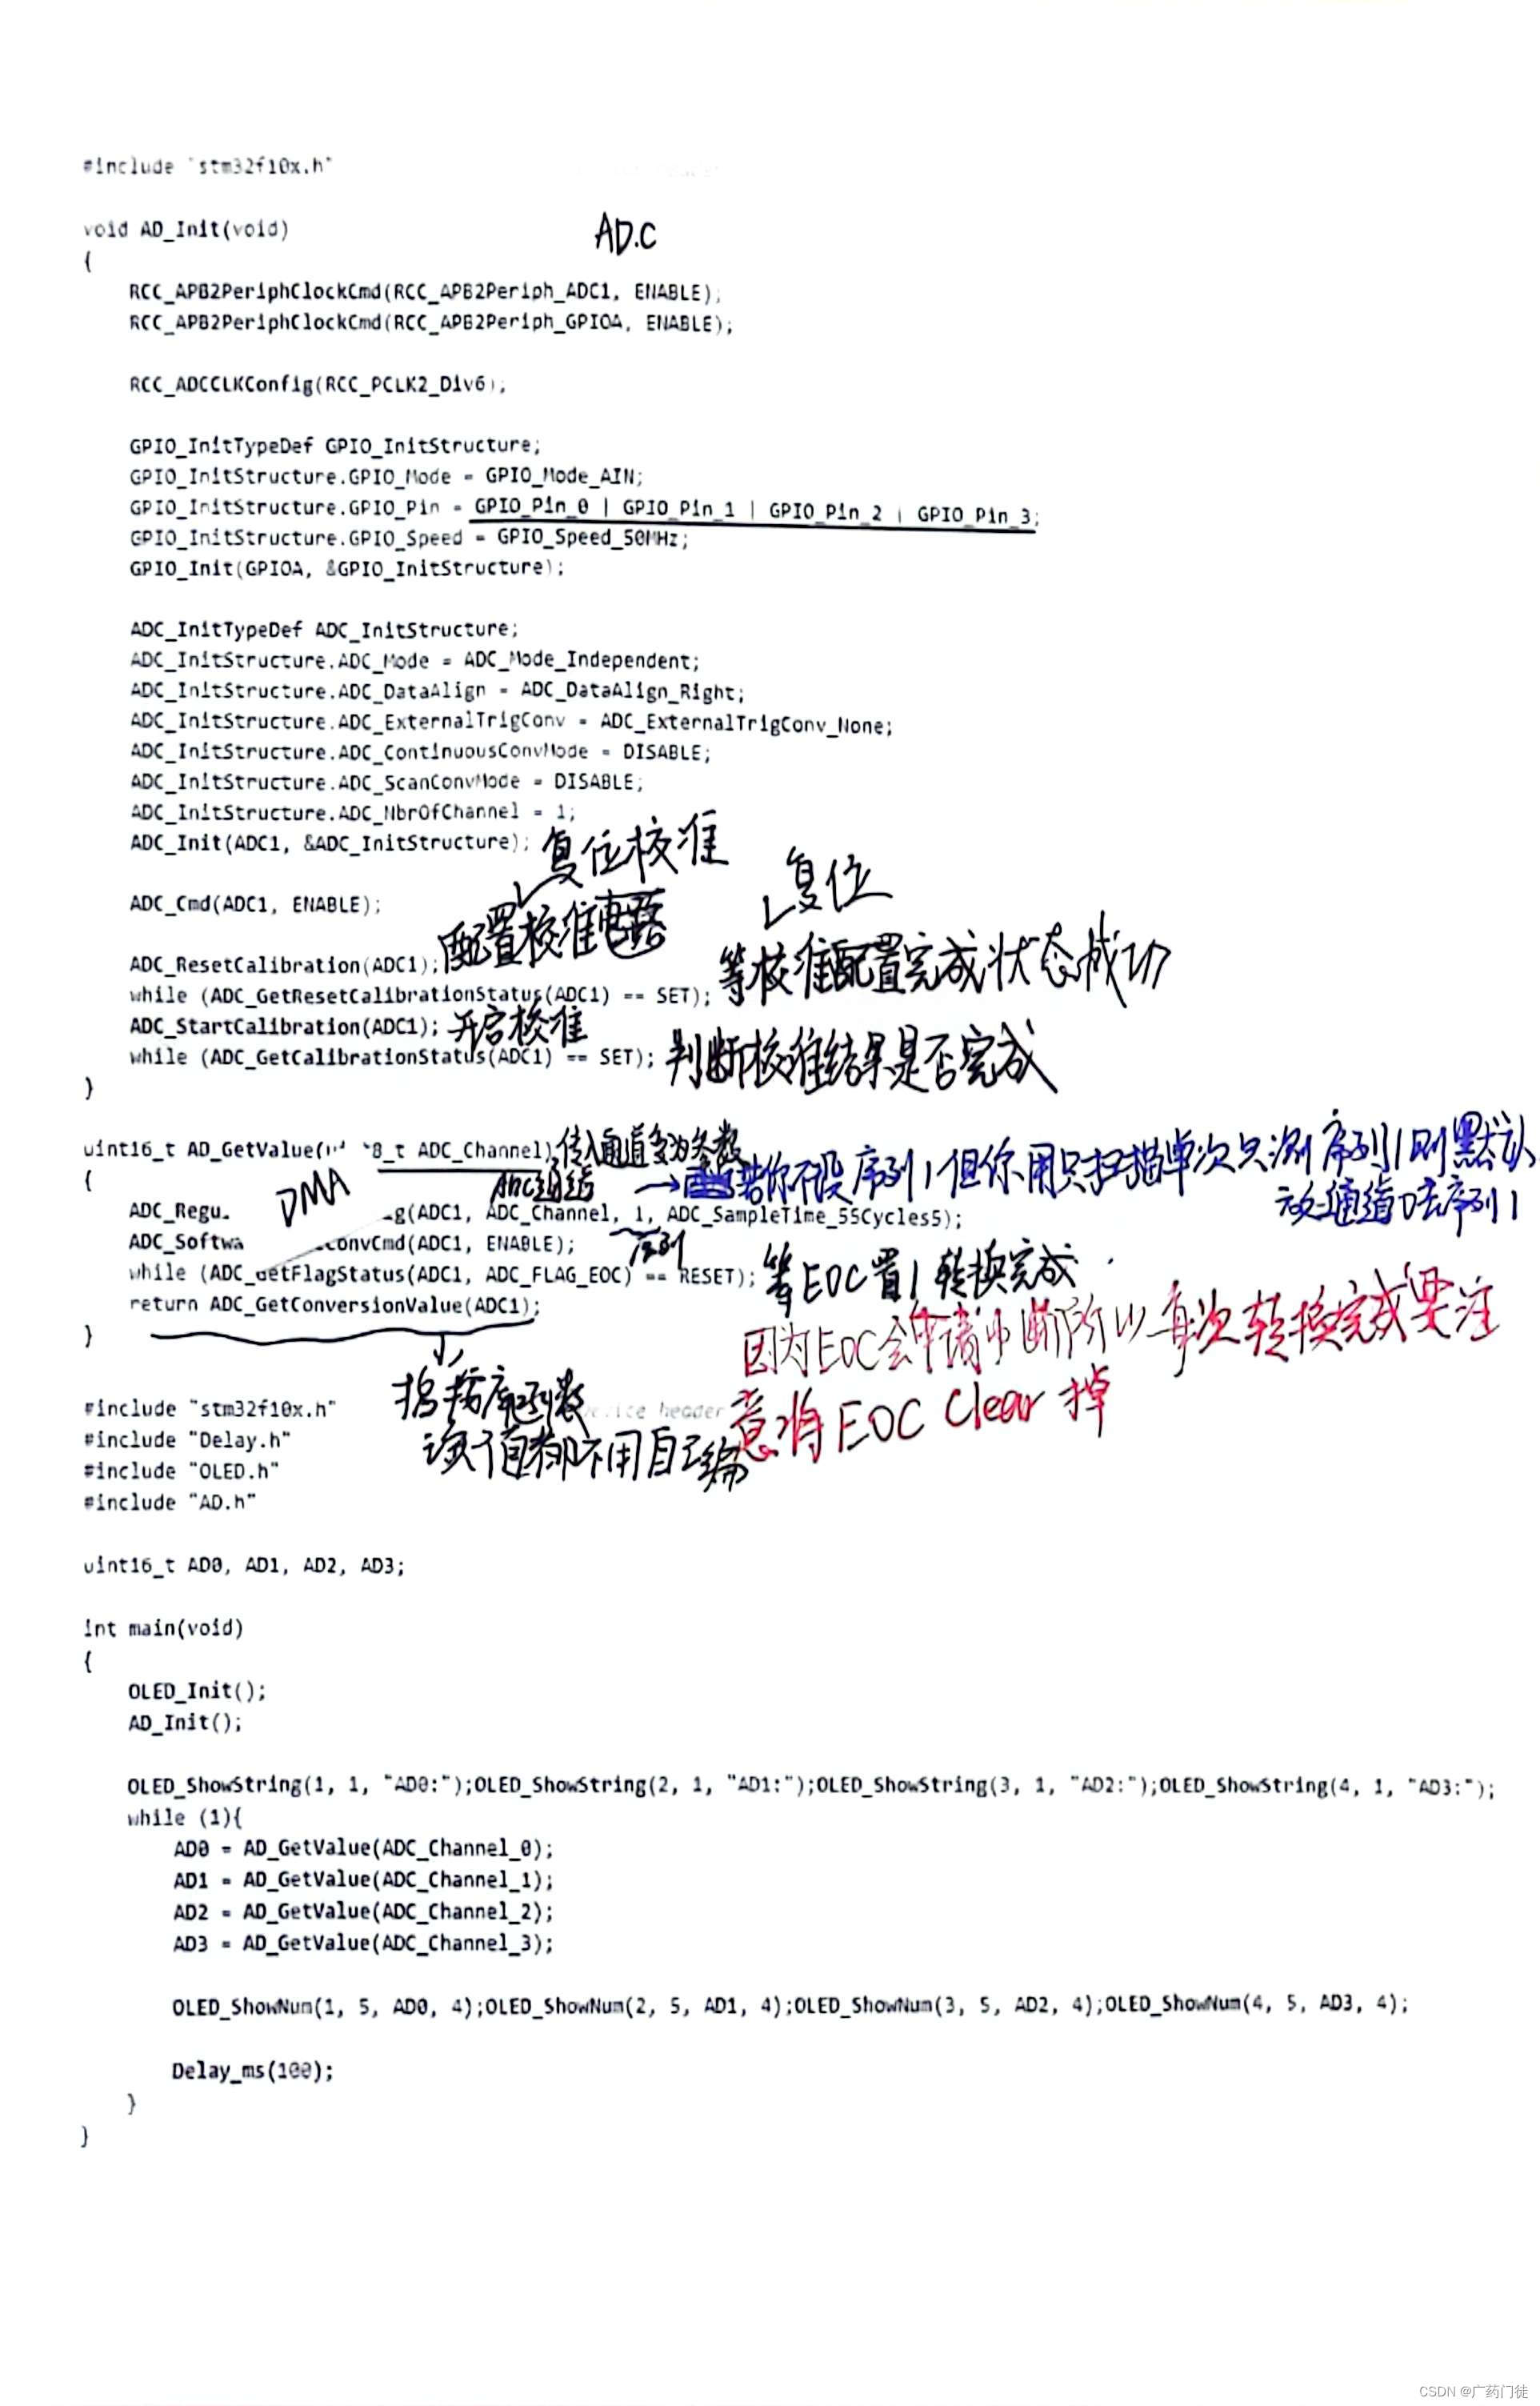 #include "stm32f10x.h"
void AD_Init(void)
AD.C
{
RCC_APB2PeriphClockCmd(RCC_APB2Periph_ADC1, ENABLE);
RCC_APB2PeriphClockCmd(RCC_APB2Periph_GPIOA, ENABLE);
RCC_ADCCLKConfig(RCC_PCLK2_Div6);
GPIO_InitTypeDef GPIO_InitStructure;
GPIO_InitStructure.GPIO_Mode = GPIO_Mode_AIN;
GPIO_InitStructure.GPIO_Pin = GPIO_Pin_0 | GPIO_Pin_1 | GPIO_Pin_2 | GPIO_Pin_3;
GPIO_InitStructure.GPIO_Speed = GPIO_Speed_50MHz;
GPIO_Init(GPIOA, &GPIO_InitStructure);
ADC_InitTypeDef ADC_InitStructure;
ADC_InitStructure.ADC_Mode = ADC_Mode_Independent;
ADC_InitStructure.ADC_DataAlign = ADC_DataAlign_Right;
ADC_InitStructure.ADC_ExternalTrigConv = ADC_ExternalTrigConv_None;
ADC_InitStructure.ADC_ContinuousConvMode = DISABLE;
ADC_InitStructure.ADC_ScanConvMode = DISABLE;
ADC_InitStructure.ADC_NbrOfChannel = 1;
ADC_Init(ADC1, &ADC_InitStructure);
复位校准
ADC_Cmd(ADC1, ENABLE);
复位
ADC_ResetCalibration(ADC1); 配置校准
while (ADC_GetResetCalibrationStatus(ADC1) == SET); 等校准配置完成状态成功
ADC_StartCalibration(ADC1); 开启校准
while (ADC_GetCalibrationStatus(ADC1) == SET); 判断校准结果是否完成
}
uint16_t AD_GetValue( 8_t ADC_Channel) 传入通道变为参数
{
DMA
ADC通道
→若你不设序列1但你用只扫描单次只测序列1则默认
放通道0去序列1
ADC_Regu g(ADC1, ADC_Channel, 1, ADC_SampleTime_55Cycles5);
ADC_Softwa ConvCmd(ADC1, ENABLE);
序列
while (ADC_GetFlagStatus(ADC1, ADC_FLAG_EOC) == RESET); 等EOC置1转换完成
return ADC_GetConversionValue(ADC1);
}
因为EOC会申请中断所以再次转换完成要注
意将EOC Clear掉
库函数
读值都不用自己编
#include "stm32f10x.h" Device header
#include "Delay.h"
#include "OLED.h"
#include "AD.h"
uint16_t AD0, AD1, AD2, AD3;
int main(void)
{
OLED_Init();
AD_Init();
OLED_ShowString(1, 1, "AD0:");OLED_ShowString(2, 1, "AD1:");OLED_ShowString(3, 1, "AD2:");OLED_ShowString(4, 1, "AD3:");
while (1){
AD0 = AD_GetValue(ADC_Channel_0);
AD1 = AD_GetValue(ADC_Channel_1);
AD2 = AD_GetValue(ADC_Channel_2);
AD3 = AD_GetValue(ADC_Channel_3);
OLED_ShowNum(1, 5, AD0, 4);OLED_ShowNum(2, 5, AD1, 4);OLED_ShowNum(3, 5, AD2, 4);OLED_ShowNum(4, 5, AD3, 4);
Delay_ms(100);
}
}
CSDN @广药门徒